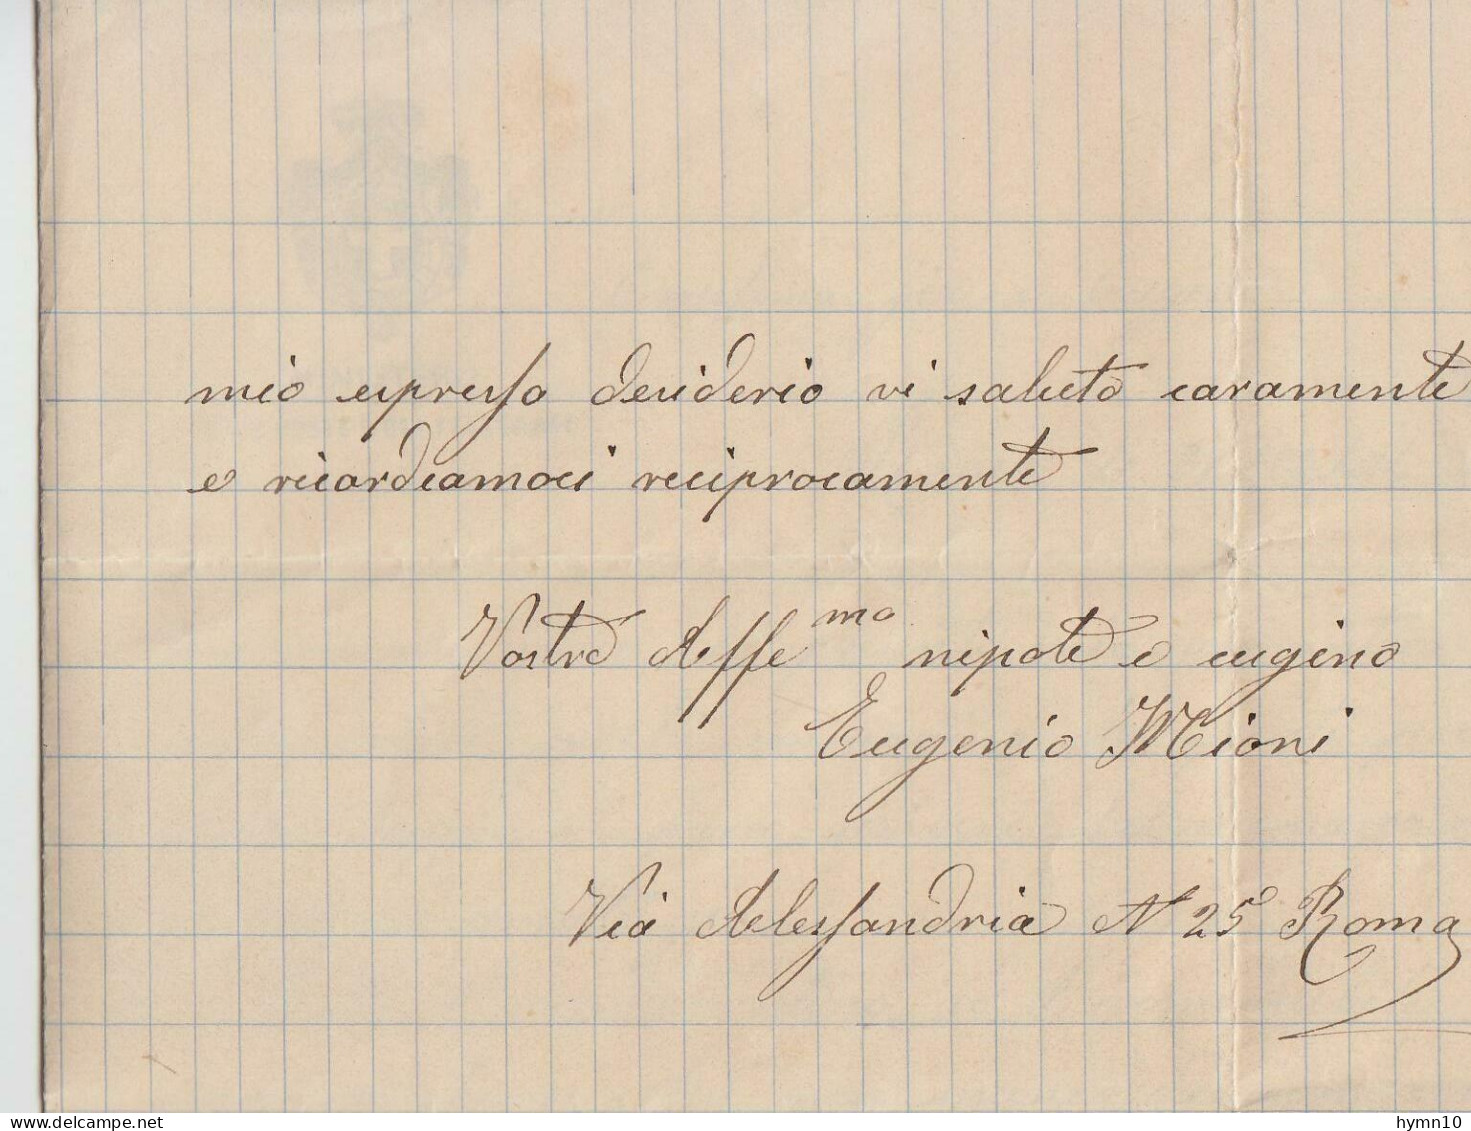 mio espresso desiderio vi saluto caramente
e ricordiamoci reciprocamente
Vostro Affe mo nipote e cugino
Eugenio Mioni
Via Alessandria N 25 Roma
delcampe.net
hymn10